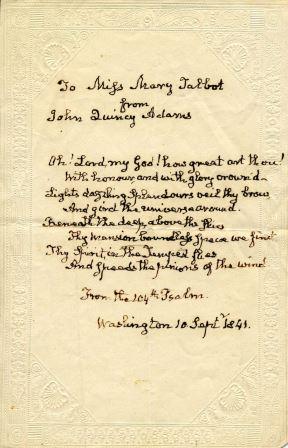 To Miss Mary Talbot
from
John Quincy Adams
Oh! Lord, my God! how great art thou!
With honour and with glory crown'd
Light's dazzling Splendours veil thy brow
And gird the universe around.
Beneath the deep, above the skies
Thy mansion boundless space we find
Thy Spirit in the Tempest flies
And speeds the pinions of the wind
From the 104th Psalm.
Washington 10 Septr 1841.